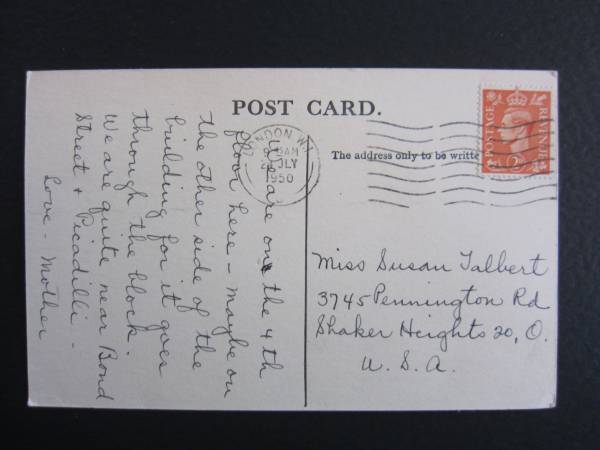 POST CARD.
The address only to be writte
LONDON W.
AM
JLY
1950
POSTAGE
REVENUE
We are on the 4th
floor here - maybe on
the other side of the
building for it goes
through the block.
We are quite near Bond
Street + Picadilli -
Love - Mother
Miss Susan Talbert
3745 Pennington Rd
Shaker Heights 20, O.
U. S. A.